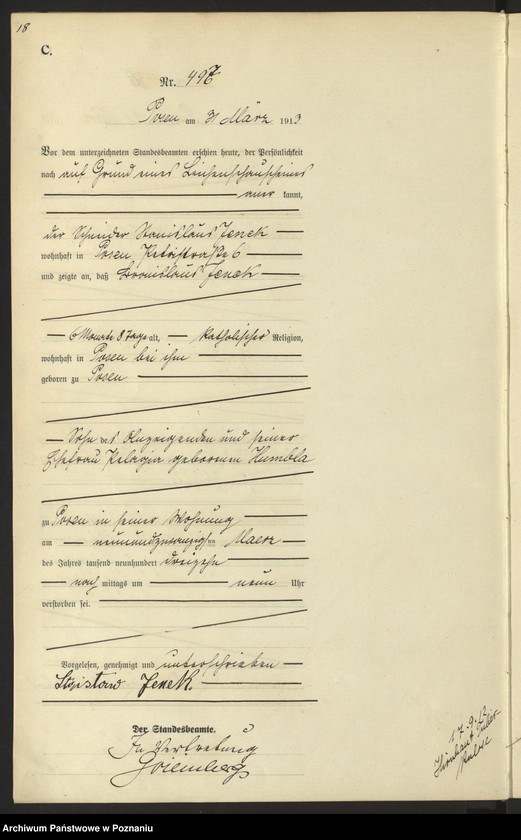 18
C.
Nr. 497
Posen am 31 März 1913
Vor dem unterzeichneten Standesbeamten erschien heute, der Persönlichkeit
nach auf Grund eines Leichenschauscheines
aner kannt,
der Schneider Stanislaus Jenek
wohnhaft in Posen, Petristraße 6
und zeigte an, daß Bronislaus Jenek
6 Monate 8 Tage alt, katholischer Religion,
wohnhaft in Posen bei ihm
geboren zu Posen
Sohn des Anzeigenden und seiner
Ehefrau Pelagia geborenen Humbla
zu Posen in seiner Wohnung
am neunundzwanzigsten Maerz
des Jahres tausend neunhundert dreizehn
nach mittags um neun Uhr
verstorben sei.
Vorgelesen, genehmigt und unterschrieben
Jenek.
Der Standesbeamte.
In Vertretung
Archiwum Państwowe w Poznaniu
szukajwarchiwach.gov.pl